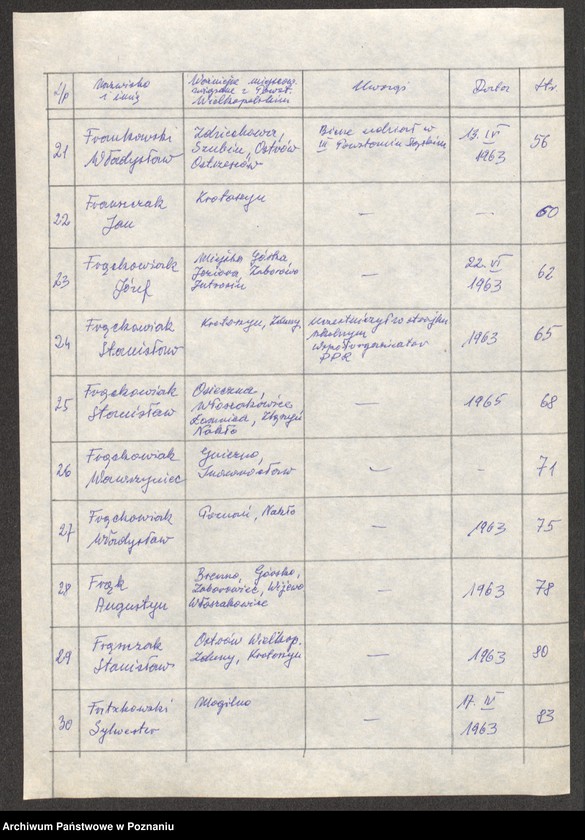 L/p
Nazwisko
i imię
Ważniejsze miejscow.
związane z Powst.
Wielkopolskim
Uwagi
Data
Str
21
Frankowski
Władysław
Zdziechowa,
Szubin, Ostrów
Ostrzeszów
Bierze udział w
III Powstaniu Śląskim
13. IV
1963
56
22
Franszczak
Jan
Krotoszyn
—
—
60
23
Frąckowiak
Józef
Miejska Górka,
Zaborowo
Jutrosin
—
22. VI
1963
62
24
Frąckowiak
Stanisław
Krotoszyn, Zduny,
Uczestniczył w strajku
szkolnym
współorganizator
PPR
1963
65
25
Frąckowiak
Stanisław
Osieczna,
Włoszakowice
Nakło
—
1965
68
26
Frąckowiak
Wawrzyniec
Gniezno,
Inowrocław
—
-
71
27
Frąckowiak
Władysław
Poznań, Nakło
—
1963
75
28
Frąk
Augustyn
Brenno,
Zaborowiec, Wijewo
Włoszakowice
—
1963
78
29
Stanisław
Ostrów Wielkop.
Zduny, Krotoszyn
—
1963
80
30
Sylwester
Mogilno
—
17. IV
1963
83
Archiwum Państwowe w Poznaniu